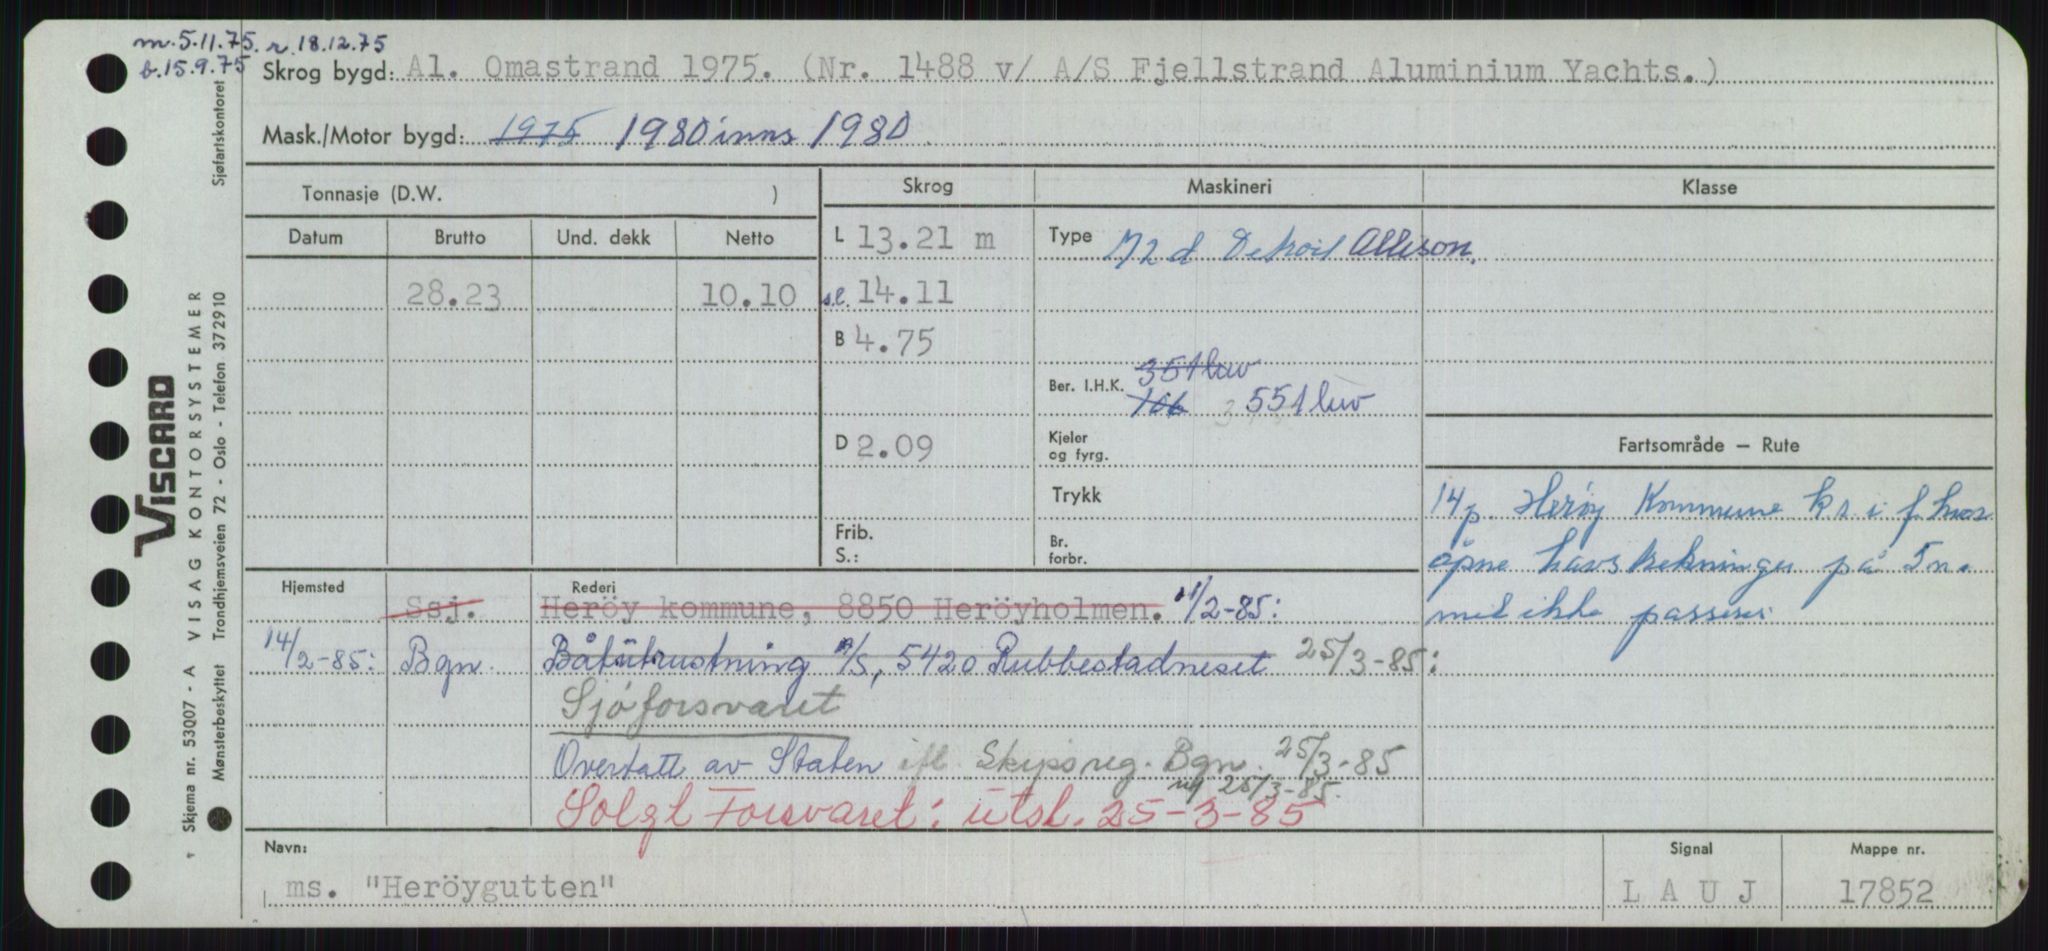 m. 5.11.75. r. 18.12.75
b. 15.9.75
Skrog bygd: Al. Omastrand 1975. (Nr. 1488 v/ A/S Fjellstrand Aluminium Yachts.)
Mask./Motor bygd: 1975 1980 inns 1980
Tonnasje (D.W. )
Skrog Maskineri Klasse
Datum Brutto Und. dekk Netto
L 13.21 m
Type 12d Detroit Allison.
28.23 10.10
s.l. 14.11
B 4.75
Ber. I.H.K. 351 kw
106 551 kw
D 2.09
Kjeler
og fyrg.
Trykk
Frib.
S.:
Br.
forbr.
Fartsområde — Rute
14 p. Herøy Kommune ks. i f. hvor
åpne havstrekninger på 5 n.
mil ikke passeres
Hjemsted Rederi
Ssj. Heröy kommune, 8850 Heröyholmen. 14/2-85:
14/2-85: Bgn. Båtutrustning A/S, 5420 Rubbestadneset 25/3-85:
Sjöforsvaret
Overtatt av Staten ifl. Skipsreg. Bgn. 25/3-85
nf 25/3-85.
Solgt Forsvaret: utsl. 25-3-85
Navn: Signal Mappe nr.
ms. "Heröygutten" L A U J 17852
VISCARD
Skjema nr. 53007 - A VISAG KONTORSYSTEMER
Mønsterbeskyttet Trondhjemsveien 72 - Oslo - Telefon 372910 Sjøfartskontoret